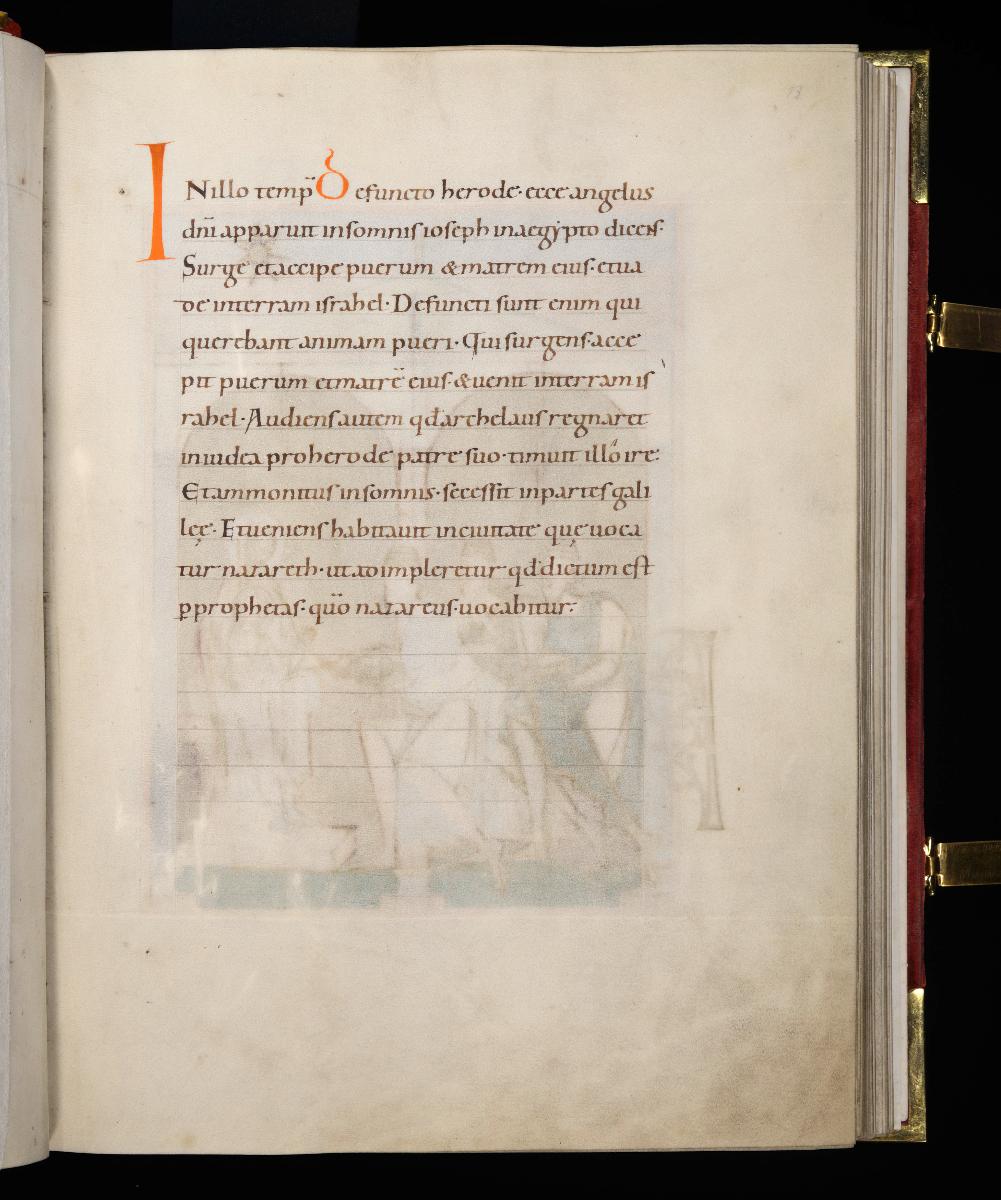 13
INillo temp̄ Defuncto herode· ecce angelus
dn̄i apparuit insomnis ioseph inaegypto dicens·
Surge etaccipe puerum &matrem eius· etua
de interram israhel· Defuncti sunt enim qui
querebant animam pueri· Qui surgens acce
pit puerum etmatrē eius· &uenit interram is
rahel· Audiens autem qđ archelaus regnaret
iniudea proherode patre suo· timuit illo ire·
Etammonitus insomnis· secessit inpartes gali
leę· Etueniens habitauit inciuitate quę uoca
tur nazareth· ut adimpleretur qđ dictum est
ꝑ prophetas· quō nazareus uocabitur·